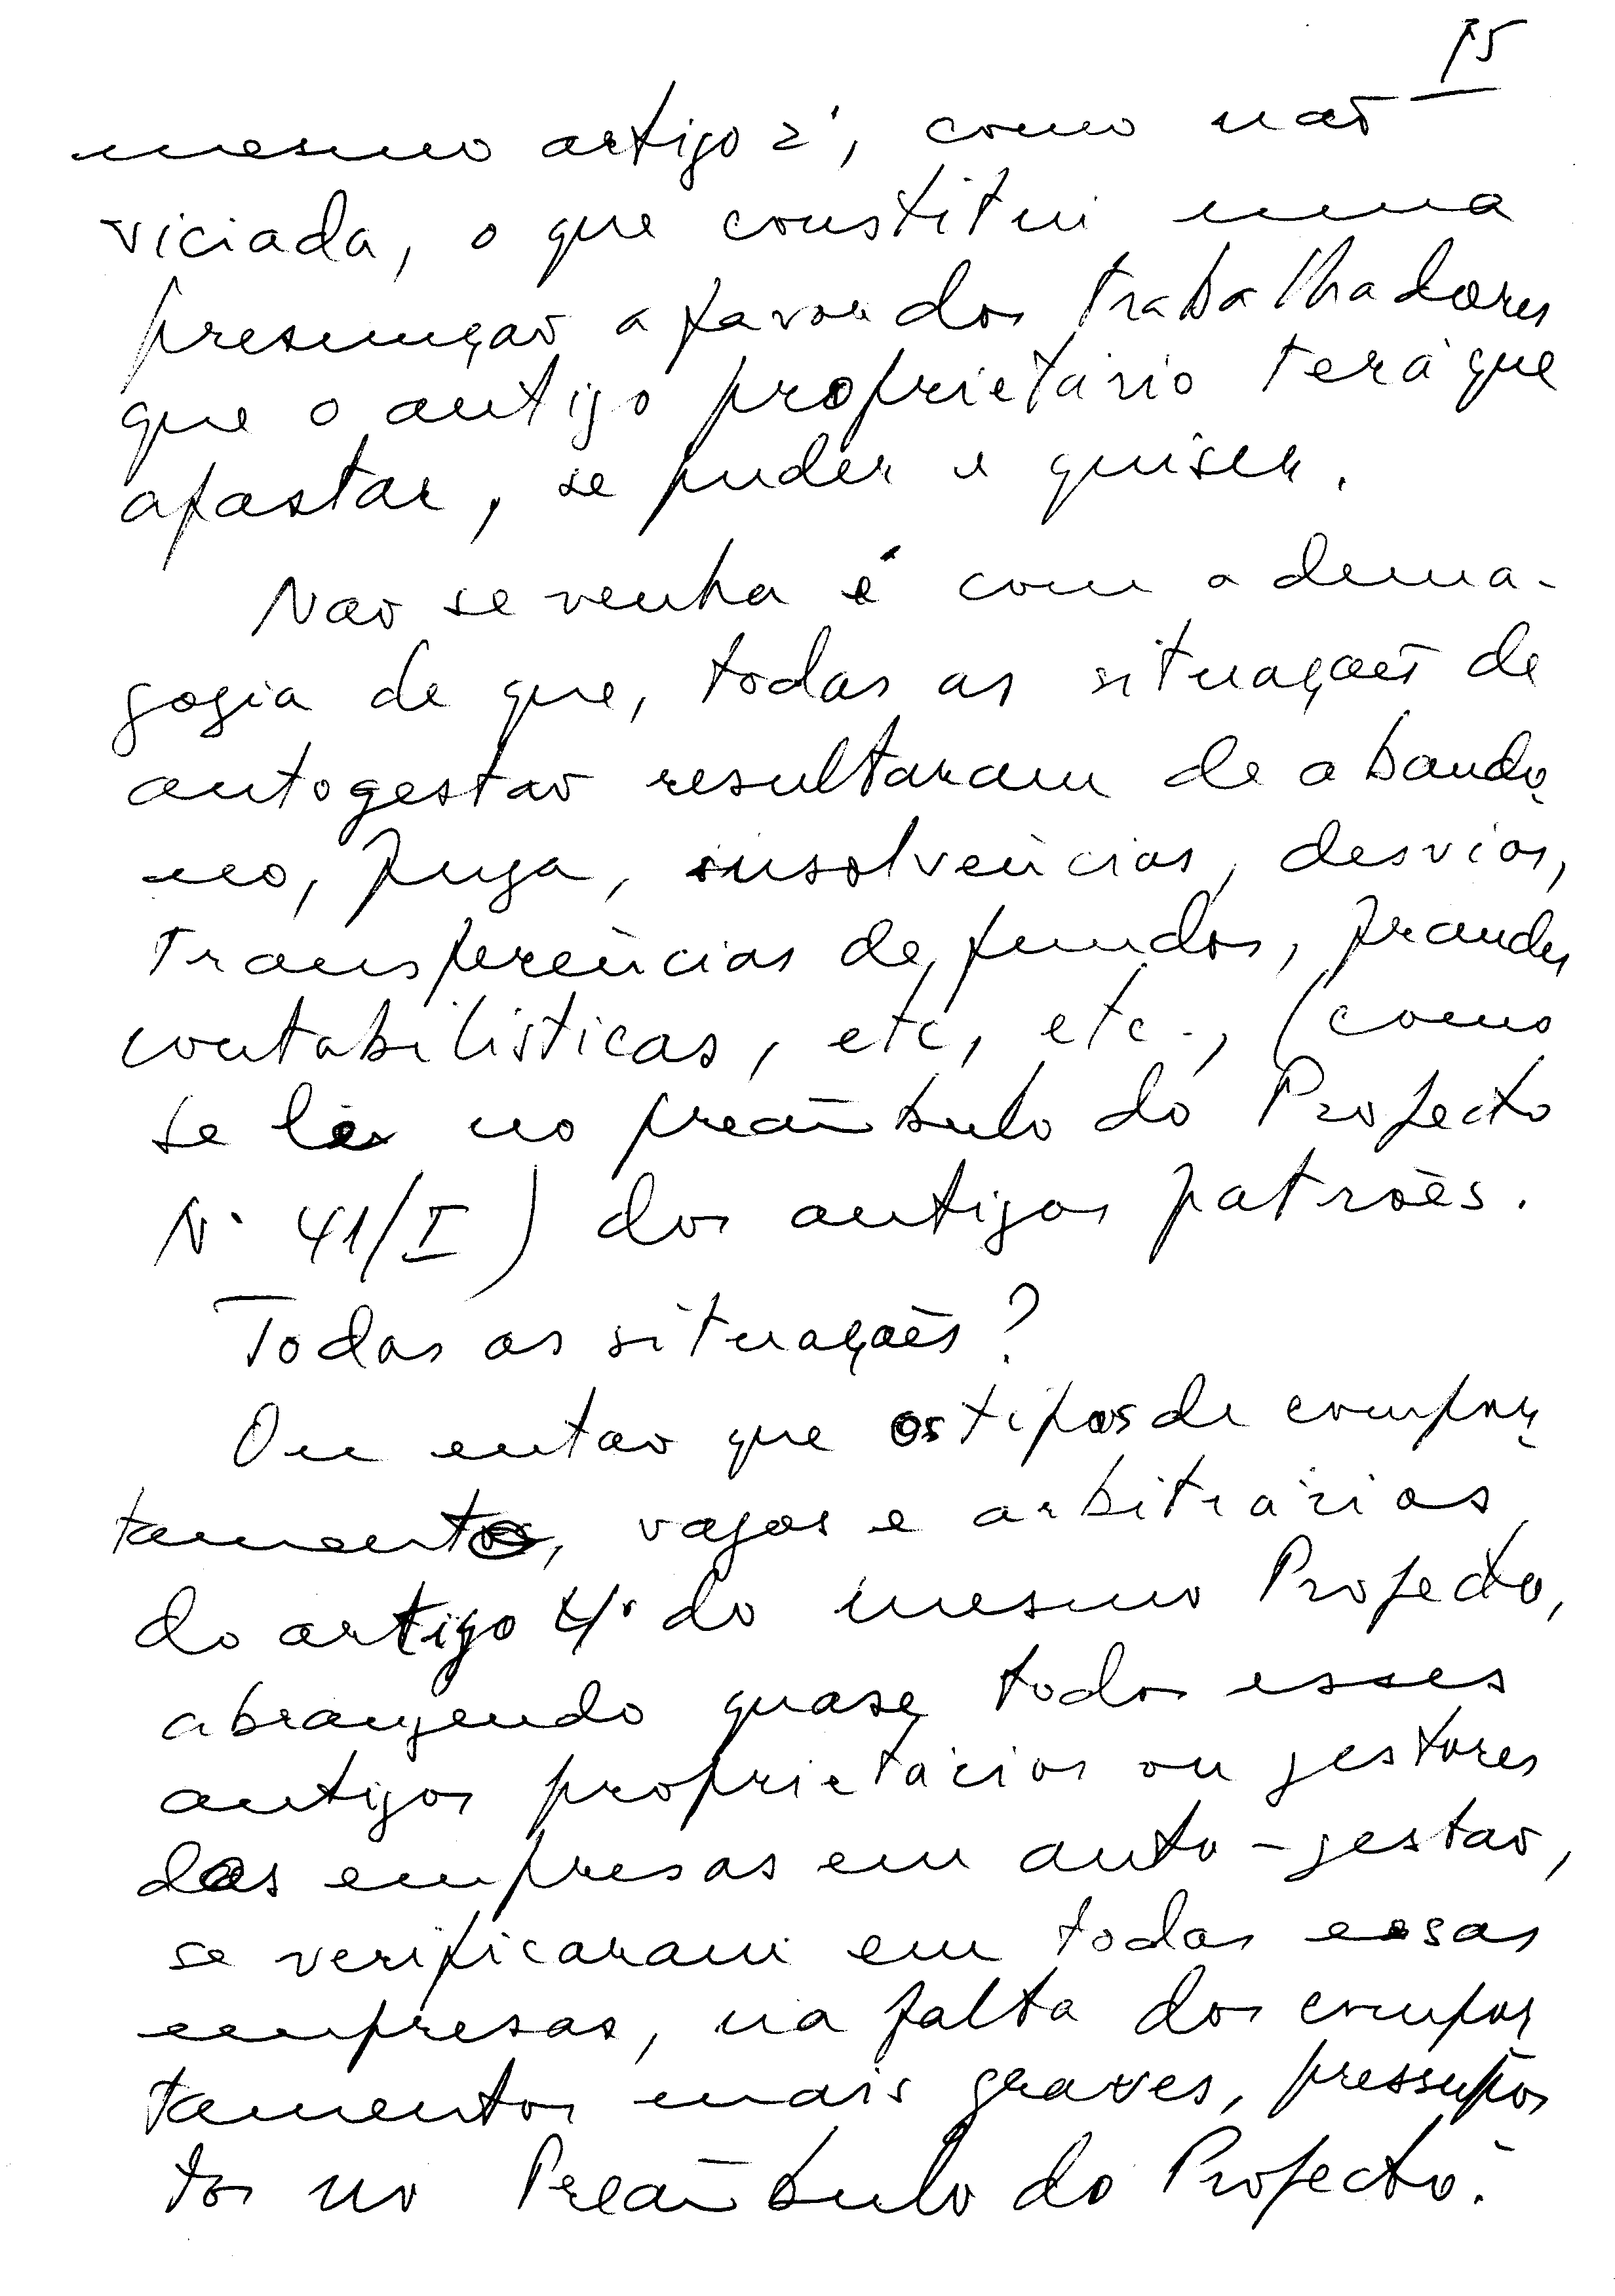 15
mesmo artigo 2º, como não
viciada, o que constitui uma
presunção a favor dos trabalhadores
que o antigo proprietário terá que
afastar, se puder e quiser.
Não se venha é com a dema-
gogia de que, todas as situações de
autogestão resultaram de abando
no, fuga, insolvências, desvios,
transferências de fundos, fraudes
contabilisticas, etc, etc., (como
se lê no preâmbulo do Projecto
Nº 41/I) dos antigos patrões.
Todas as situações?
Ou então que os tipos de compor
tamento, vagos e arbitrários
do artigo 4º do mesmo Projecto,
abrangendo quase todos esses
antigos proprietários ou gestores
das empresas em auto-gestão,
se verificaram em todas essas
empresas, na falta dos compor
tamentos mais graves, pressupos
tos no Preâmbulo do Projecto.